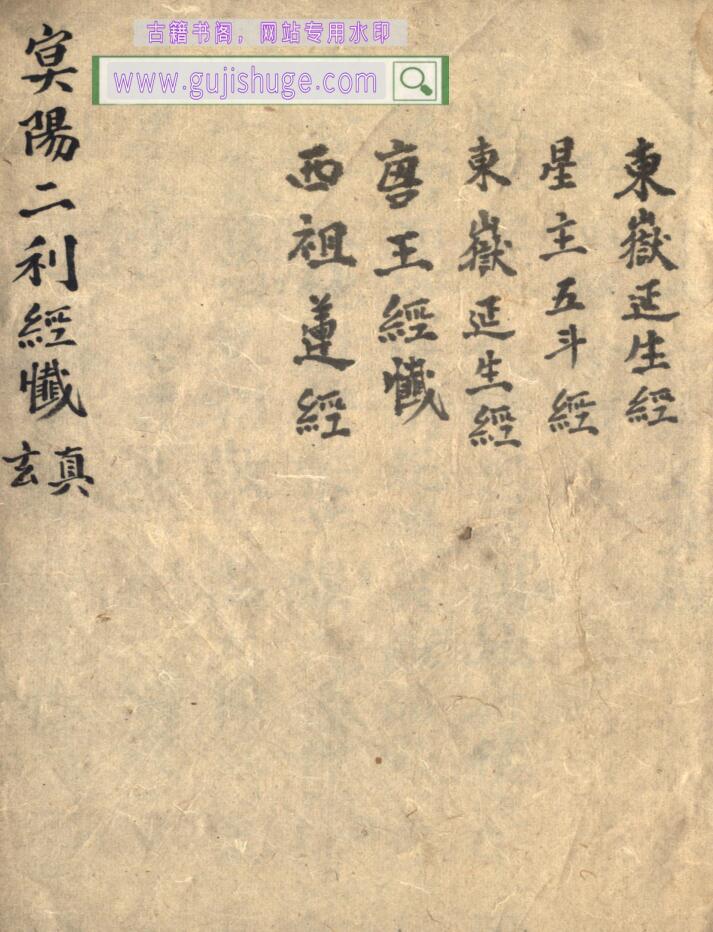 古籍书阁，网站专用水印
www.gujishuge.com
東嶽延生經
星主五斗經
東嶽延生經
唐王經懺
西祖蓮經
冥陽二利經懺
真玄